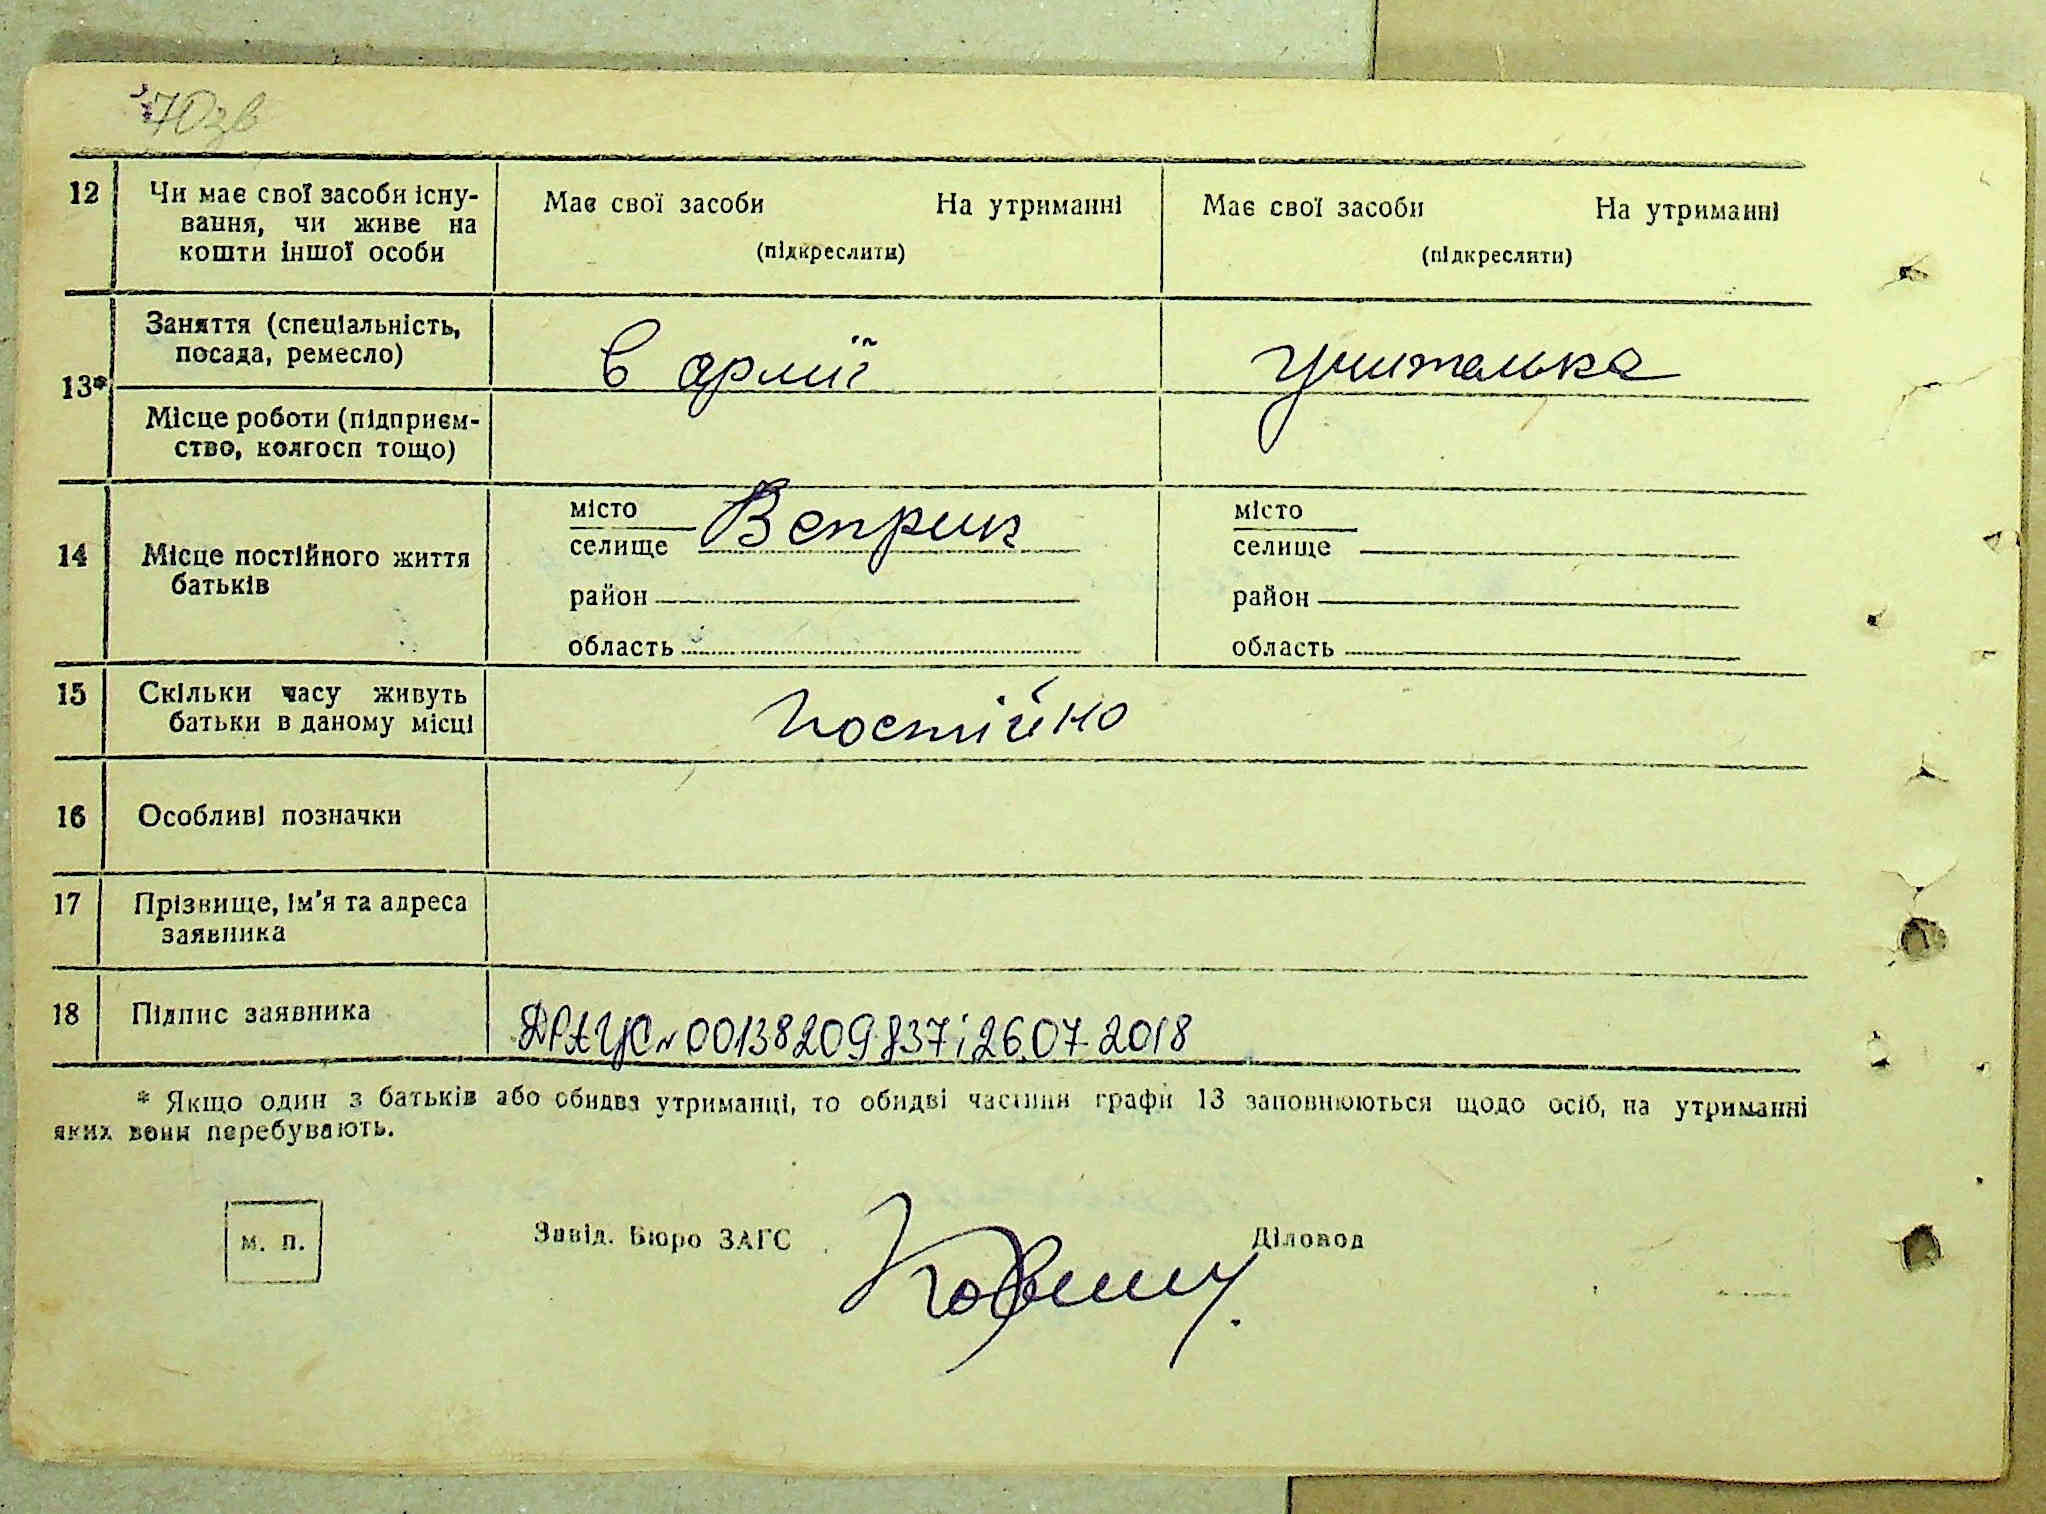 70зв
12 Чи має свої засоби існу- Має свої засоби На утриманні Має свої засоби На утриманні
вання, чи живе на
кошти іншої особи (підкреслити) (підкреслити)
13* Заняття (спеціальність,
посада, ремесло) в армії учителька
Місце роботи (підприєм-
ство, колгосп тощо)
14 Місце постійного життя
батьків
місто Веприк
селище
район
область
місто
селище
район
область
15 Скільки часу живуть
батьки в даному місці постійно
16 Особливі позначки
17 Прізвище, ім'я та адреса
заявника
18 Підпис заявника ДРАЦС № 00138209837 і 26.07.2018
* Якщо один з батьків або обидва утриманці, то обидві частини графи 13 заповнюються щодо осіб, на утриманні
яких вони перебувають.
м. п. Завід. Бюро ЗАГС Діловод